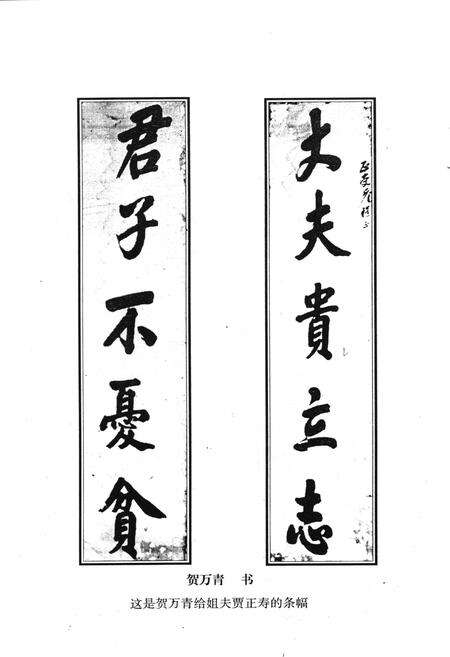 丈夫貴立志
君子不憂貧
贺万青 书
这是贺万青给姐夫贾正寿的条幅